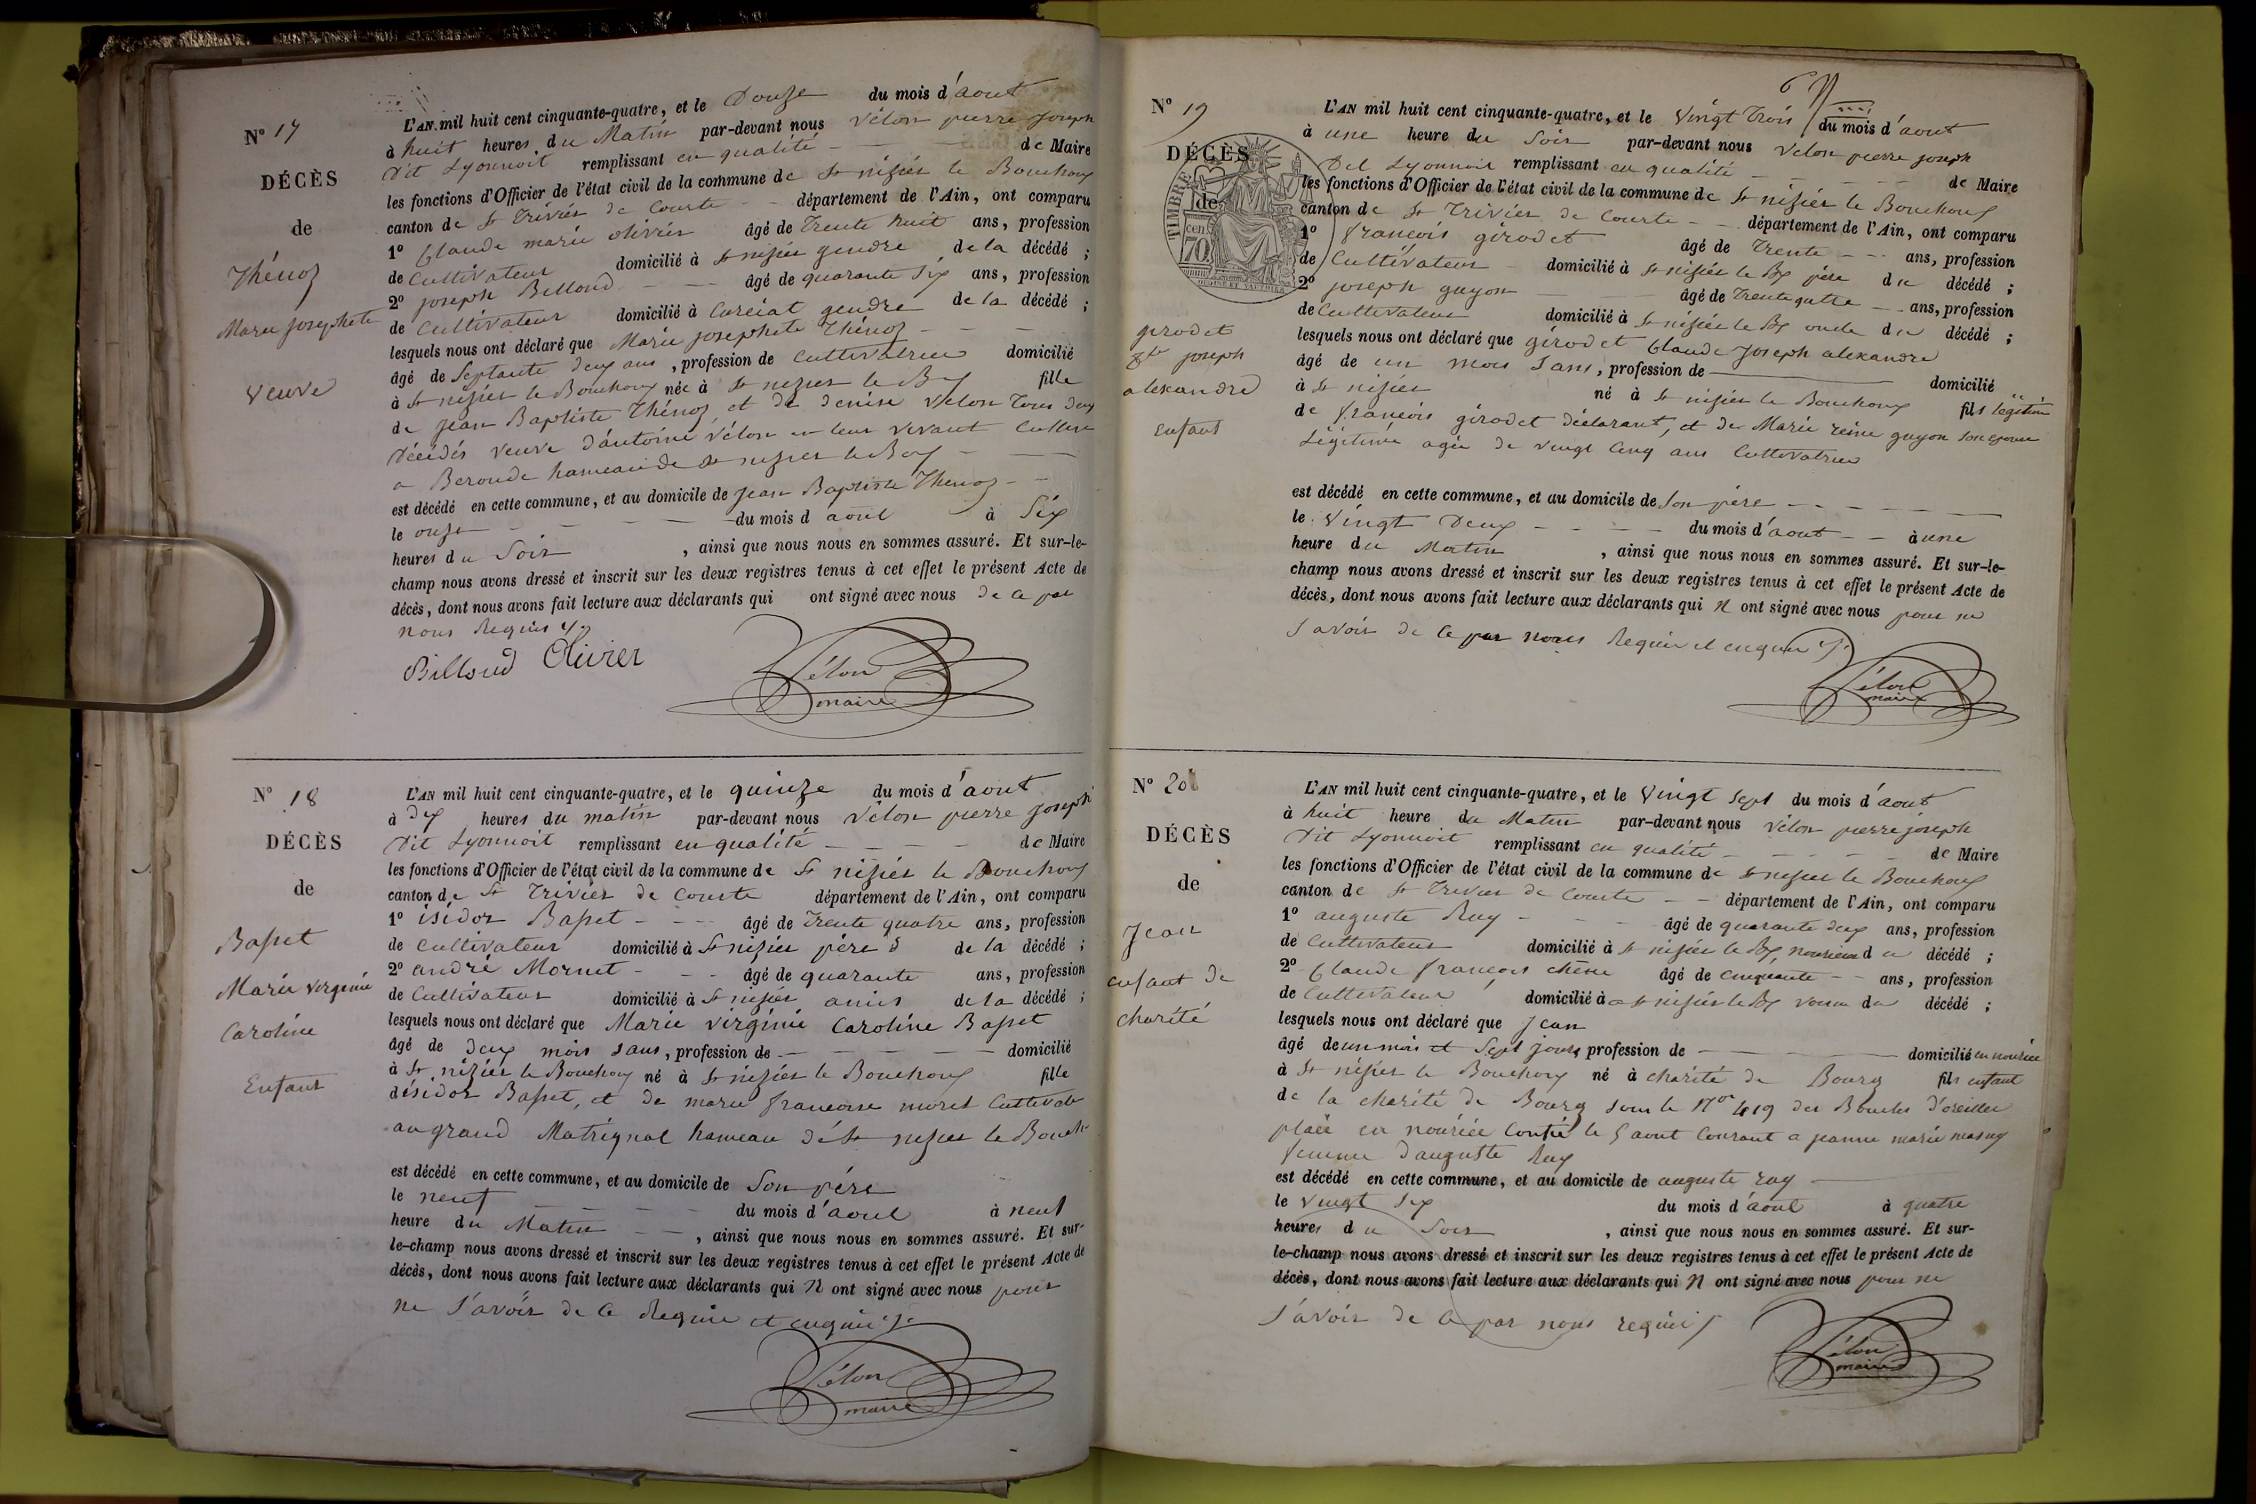 N° 17
DÉCÈS
de
Thénoz
Marie Josephete
Veuve
L'AN mil huit cent cinquante-quatre, et le Douze du mois d'aout
à huit heures du Matin par-devant nous Vélon pierre Joseph
Dit Lyonnoit remplissant en qualité de Maire
les fonctions d'Officier de l'état civil de la commune de St nisier le Bouchoux
canton de St Trivier de Courte département de l'Ain, ont comparu
1° Claude marie olivier âgé de Trente huit ans, profession
de Cultivateur domicilié à St nisier gendre de la décédé ;
2° joseph Billoud âgé de quarante Six ans, profession
de Cultivateur domicilié à Curciat gendre de la décédé ;
lesquels nous ont déclaré que Marie Josephete Thénoz
âgé de Septante deux ans, profession de Cultivatrice domicilié
à St nisier le Bouchoux née à St nisier le Bx fille
de Jean Baptiste Thénoz et de denise Velon Tous deux
décédés veuve d'antoine Vélon en leur vivant Cultiv
a Beronde hameau de St nisier le Bx
est décédé en cette commune, et au domicile de Jean Baptiste Thenoz
le onze du mois d aout à Six
heures du Soir, ainsi que nous nous en sommes assuré. Et sur-le-
champ nous avons dressé et inscrit sur les deux registres tenus à cet effet le présent Acte de
décès, dont nous avons fait lecture aux déclarants qui ont signé avec nous de ce par
nous Requis
Billoud Olivier
Vélon
maire
N° 18
DÉCÈS
de
Basset
Marie Virginie
Caroline
Enfant
L'AN mil huit cent cinquante-quatre, et le quinze du mois d'aout
à dix heures du matin par-devant nous Vélon pierre Joseph
Dit Lyonnoit remplissant en qualité de Maire
les fonctions d'Officier de l'état civil de la commune de St nisier le Bouchoux
canton de St Trivier de Courte département de l'Ain, ont comparu
1° isidor Basset âgé de Trente quatre ans, profession
de Cultivateur domicilié à St nisier père de la décédé ;
2° andré Mornet âgé de quarante ans, profession
de Cultivateur domicilié à St nisier amis de la décédé ;
lesquels nous ont déclaré que Marie Virginie Caroline Basset
âgé de deux mois sans, profession de domicilié
à St nisier le Bouchoux né à St nisier le Bouchoux fille
désidor Basset, et de marie francoise morel Cultivat
au grand Matrignal hameau dé St nisier le Bouch
est décédé en cette commune, et au domicile de Son père
le neuf du mois d'aout à neuf
heure du Matin, ainsi que nous nous en sommes assuré. Et sur-
le-champ nous avons dressé et inscrit sur les deux registres tenus à cet effet le présent Acte de
décès, dont nous avons fait lecture aux déclarants qui N ont signé avec nous pour
ne Savoir de Ce Requie et enquie
Vélon
maire
N° 19
DÉCÈS
de
TIMBRE
cen
70
girodet
joseph
alexandre
enfant
L'AN mil huit cent cinquante-quatre, et le Vingt Trois du mois d'aout
à une heure du Soir par-devant nous Vélon pierre joseph
Dit Lyonnoit remplissant en qualité de Maire
les fonctions d'Officier de l'état civil de la commune de St nisier le Bouchoux
canton de St Trivier de Courte département de l'Ain, ont comparu
1° francois girodet âgé de Trente ans, profession
de Cultivateur domicilié à St nisier le Bx père du décédé ;
2° joseph guyon âgé de Trente quatre ans, profession
de Cultivateur domicilié à St nisier le Bx oncle du décédé ;
lesquels nous ont déclaré que girodet Claude Joseph alexandre
âgé de un mois Sans, profession de domicilié
à St nisier né à St nisier le Bouchoux fils légitime
de francois girodet déclarant, et de Marie reine guyon son epouse
Légitime agée de vingt Cinq ans Cultivatrice
est décédé en cette commune, et au domicile de Son père
le Vingt Deux du mois d'aout à une
heure du Matin, ainsi que nous nous en sommes assuré. Et sur-le-
champ nous avons dressé et inscrit sur les deux registres tenus à cet effet le présent Acte de
décès, dont nous avons fait lecture aux déclarants qui N ont signé avec nous pour ne
Savoir de Ce par nous Requie et enquie
Vélon
maire
N° 20
DÉCÈS
de
Jean
enfant de
charité
L'AN mil huit cent cinquante-quatre, et le Vingt Sept du mois d'aout
à huit heure du Matin par-devant nous Vélon pierre joseph
Dit Lyonnoit remplissant en qualité de Maire
les fonctions d'Officier de l'état civil de la commune de St nisier le Bouchoux
canton de St Trivier de Courte département de l'Ain, ont comparu
1° auguste Ruy âgé de quarante deux ans, profession
de Cultivateur domicilié à St nisier le Bx, nouricier du décédé ;
2° Claude francois chêne âgé de Cinquante ans, profession
de Cultivateur domicilié à St nisier le Bx voisin du décédé ;
lesquels nous ont déclaré que Jean
âgé de un mois et Sept jours profession de domicilié en nourice
à St nisier le Bouchoux né à charité de Bourg fils enfant
de la charité de Bourg sous le No 419 des Boucles d'oreilles
placé en nouriée Contre le 5 aout Courant a jeanne marie
femme d'auguste Ruy
est décédé en cette commune, et au domicile de auguste ruy
le Vingt Six du mois d'aout à quatre
heures du Soir, ainsi que nous nous en sommes assuré. Et sur-
le-champ nous avons dressé et inscrit sur les deux registres tenus à cet effet le présent Acte de
décès, dont nous avons fait lecture aux déclarants qui N ont signé avec nous pour ne
Savoir de Ce par nous requie
Vélon
maire